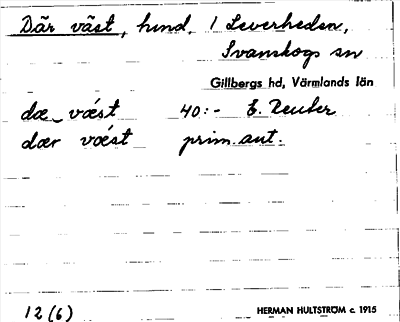 Där väst, hund, i Leverheden,
Svanskogs sn
Gillbergs hd, Värmlands län
dæ_ vǽst 40:- E. Neuter
dær vǽst prim. aut.
12 (6) HERMAN HULTSTRÖM c. 1915